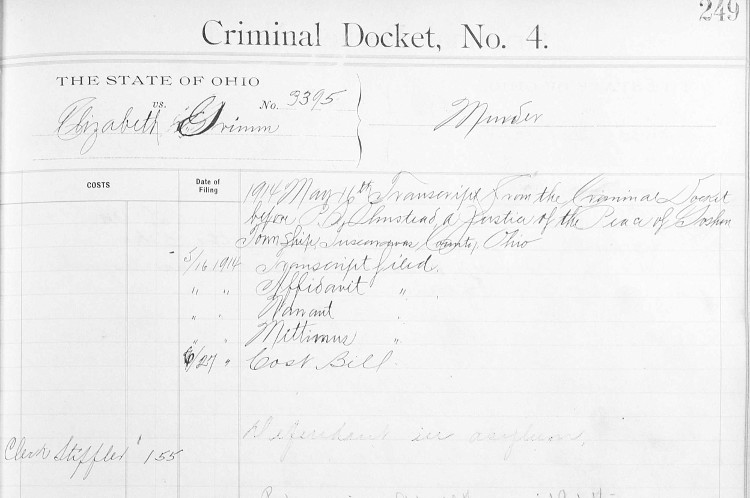 249
Criminal Docket, No. 4.
THE STATE OF OHIO
vs.
No. 3395
Elizabeth Grimm
Murder
COSTS
Date of
Filing
1914 May 16th Transcript from the Criminal Docket
before Olmstead a Justice of the Peace of Goshen
Township Tuscarawas County, Ohio
5/16 1914 Transcript filed.
" " Affidavit "
" " Warrant "
" " Mittimus "
6/27 " Cost Bill.
Defendant in asylum.
Clerk Stiffler 1 55